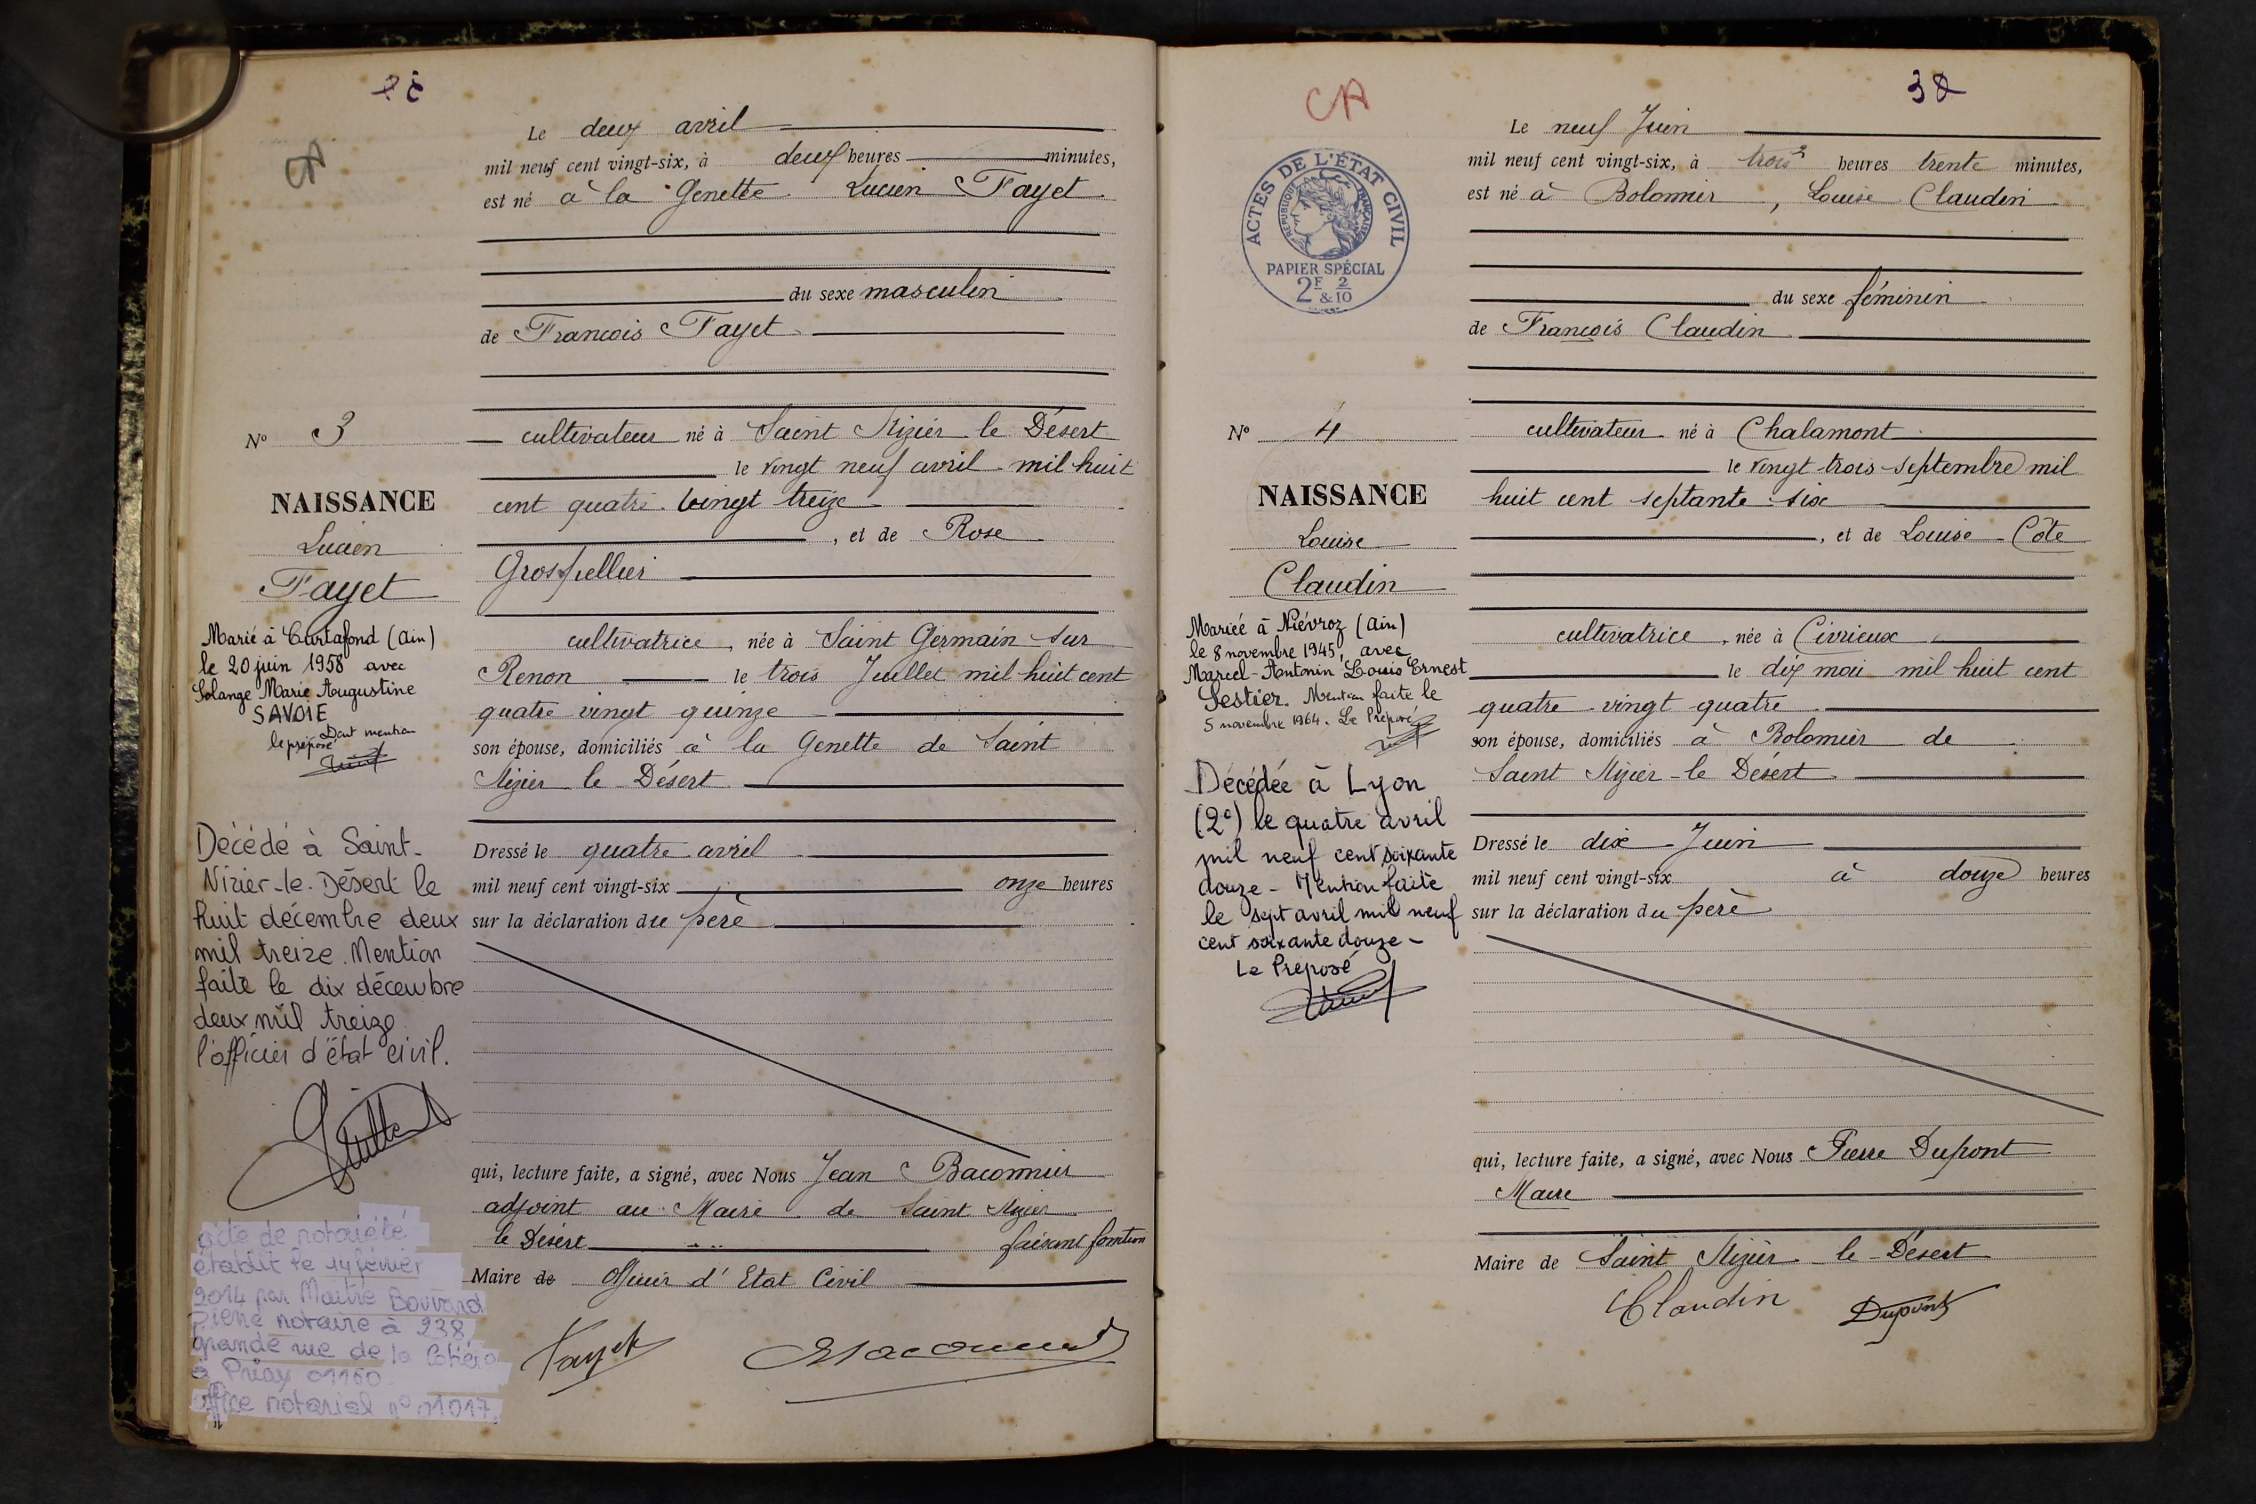 CA
Le deux avril
mil neuf cent vingt-six, à deux heures minutes,
est né à la Genette Lucien Fayet
du sexe masculin
de François Fayet
cultivateur né à Saint Nizier le Désert
le vingt neuf avril mil huit
cent quatre vingt treize
, et de Rose
Grospellier
cultivatrice, née à Saint Germain sur
Renon le trois Juillet mil huit cent
quatre vingt quinze
son épouse, domiciliés à la Genette de Saint
Nizier le Désert
Dressé le quatre avril
mil neuf cent vingt-six onze heures
sur la déclaration du père
qui, lecture faite, a signé, avec Nous Jean Baconnier
adjoint au Maire de Saint Nizier
le Désert faisant fonction
Maire de Officier d'Etat Civil
Fayet
Baconnier
N° 3
NAISSANCE
Lucien
Fayet
Marié à Curtafond (Ain)
le 20 juin 1958 avec
Solange Marie Augustine
SAVOIE
Dont mention
le préposé
Décédé à Saint-
Nizier-le-Désert le
huit décembre deux
mil treize. Mention
faite le dix décembre
deux mil treize
l'officier d'état civil.
acte de notoriété
établit le 14 février
2014 par Maître Bouvard
Pierre notaire à 238
grande rue de la Côtière
à Priay 01160
office notarial n° 01017.
CA
38
ACTES DE L'ÉTAT CIVIL
RÉPUBLIQUE FRANÇAISE
PAPIER SPÉCIAL
2F & 2/10
Le neuf Juin
mil neuf cent vingt-six, à trois heures trente minutes,
est né à Bolomier, Louise Claudin
du sexe féminin
de François Claudin
cultivateur né à Chalamont
le vingt-trois septembre mil
huit cent septante-six
, et de Louise Côte
cultivatrice, née à Civrieux
le dix mai mil huit cent
quatre-vingt quatre
son épouse, domiciliés à Bolomier de
Saint Nizier-le Désert
Dressé le dix Juin
mil neuf cent vingt-six à douze heures
sur la déclaration du père
qui, lecture faite, a signé, avec Nous Pierre Dupont
Maire
Maire de Saint Nizier le Désert
Claudin
Dupont
N° 4
NAISSANCE
Louise
Claudin
Mariée à Niévroz (Ain)
le 8 novembre 1945, avec
Marcel-Antonin Louis Ernest
Sestier. Mention faite le
5 novembre 1964. Le Préposé
Décédée à Lyon
(2e) le quatre avril
mil neuf cent soixante
douze - Mention faite
le sept avril mil neuf
cent soixante douze -
Le Préposé